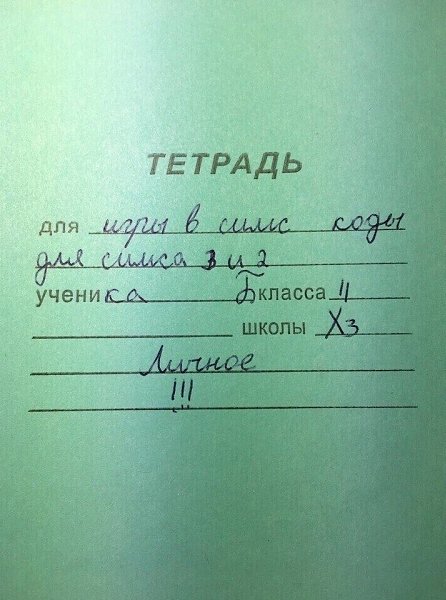 ТЕТРАДЬ
для игры в симс коды
для симса 3 и 2
ученика Б класса 4
школы Хз
Личное
!!!